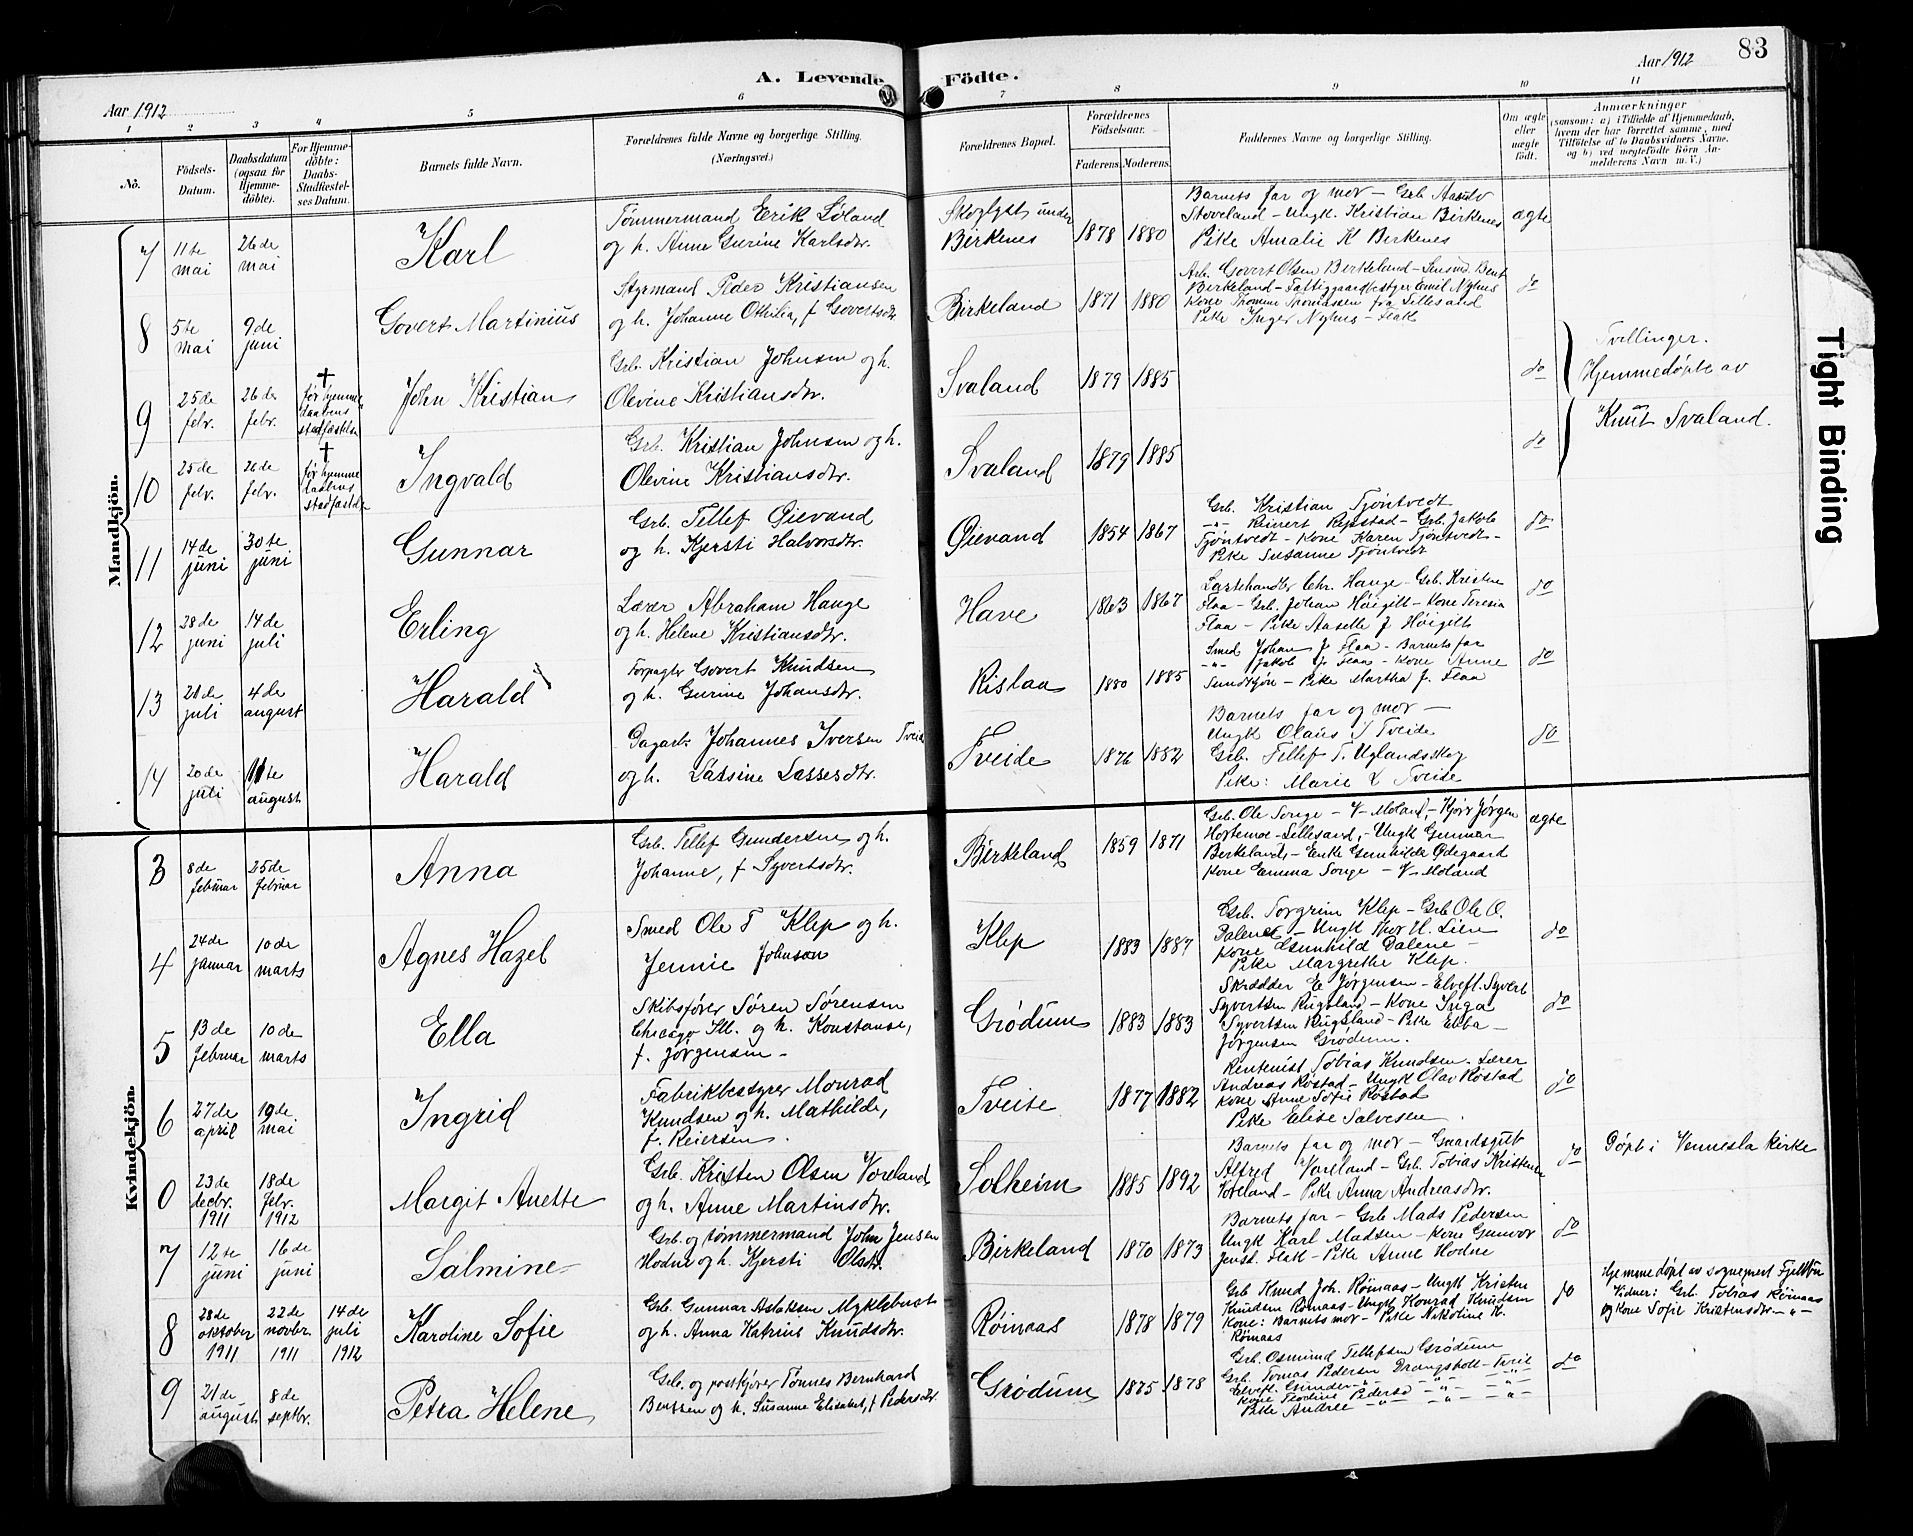 83
A. Levende Födte.
Aar 1912
Aar 1912
1 2 3 4 5 6 7 8 9 10 11
No.
Födsels-Datum.
Daabsdatum (ogsaa for Hjemme-döbte).
For Hjemme-döbte: Daabs-Stadfæstel-ses Datum.
Barnets fulde Navn.
Forældrenes fulde Navne og borgerlige Stilling.
(Næringsvei.)
Forældrenes Bopæl.
Forældrenes Födselsaar.
Faderens. Moderens.
Faddernes Navne og borgerlige Stilling.
Om ægte eller uægte födt.
Anmærkninger
(saasom: a) i Tilfælde af Hjemmedaab,
hvem der har forrettet samme, med
Tilföielse af to Daabsvidners Navne,
og b) ved uægtefödte Börn An-
melderens Navn m. V.)
Mandkjön.
7 11te mai 26de mai Karl
Tømmermand Erik Løland
og h. Anne Gurine Karlsdtr.
Skoglyst under
Birkenes 1878 1880
Barnets far og mor - Grb. Aasulv
Stoveland - Ungk. Kristian Birkenes
Pike Amalie K Birkenes
ægte
8 5te mai 9de juni Govert Martinius
Styrmand Peder Kristiansen
og h. Johanne Othilia, f Govertsdtr
Birkeland 1871 1880
Arb. Govert Olsen Birkeland - Bent
Birkeland - Fattiggaardbestyrer Emil Nyhus
Kone Thomine Thomassen fra Lillesand
Pike Inger Nyhus - Flak
do
9 25de febr. 26de febr. † før hjemme daabens stadfæstelse John Kristian
Grb. Kristian Johnsen og h.
Olevine Kristiansdtr.
Svaland 1879 1885
do
Tvillinger.
Hjemmedøpte av
Knut Svaland.
10 25de febr. 26de febr. † før hjemme daabens Ingvald
Grb. Kristian Johnsen og h.
Olevine Kristiansdtr.
Svaland 1879 1885
do
11 14de juni 30te juni Gunnar
Grb. Tellef Øievand
og h. Kjersti Halvorsdtr.
Øievand 1854 1867
Grb. Kristian Tjøntvedt
-"- Reinert Repstad - Grb. Jakob
Tjøntvedt - Kone Karen Tjøntvedt -
Pike Susanne Tjøntvedt
do
12 28de juni 14de juli Erling
Lærer Abraham Hauge
og h. Helene Kristiansdtr.
Have 1863 1867
Chr. Hauge - Grb. Kristen
Flaa - Grb. Johan Høigilt - Kone Teresia
Flaa - Pike Aaselle J Høigilt
do
13 21de juli 4de august Harald
Forpagter Govert Knudsen
og h. Gurine Johansdtr.
Rislaa 1880 1885
Smed Johan J Flaa - Barnets far
-"- Jakob J. Flaa - Kone Anne
Sundtjøn - Pike Martha J. Flaa
do
14 20de juli 11te august Harald
Dagarb. Johannes Iversen Tveide
og h. Lassine Lassesdtr.
Tveide 1876 1882
Barnets far og mor -
Ungk Olaus I Tveide
Grb. Tellef T. Uglandsskog
Pike: Marie L Tveite
do
Kvindekjön.
3 8de februar 25de februar Anna
Grb. Tellef Gundersen og h.
Johanne, f Syvertsdtr.
Birkeland 1859 1871
Grb. Ole Songe - V-Moland, - Kjøv Jørgen
Hortemoe - Lillesand, - Ungk Gunnar
Birkeland, - Enke Gunhilde Ødegaard
Kone Emma Songe - V-Moland
ægte
4 24de januar 10de marts Agnes Hazel
Smed Ole T Klep og h.
Jennie Johnson
Klep 1883 1887
Grb. Torgrim Klep - Grb Ole O.
Dalene - Ungk Thor H. Lien
Kone Gunhild Dalene -
Pike Margrethe Klep.
do
5 13de februar 10de marts Ella
Skibsfører Søren Sørensen
Chicago Ill. og h. Konstanse,
f. Jørgensen -
Grødum 1883 1883
Skrædder E Jørgensen - Elvefl. Syvert
Syvertsen Rugsland - Kone Inga
Syvertsen Rugsland - Pike Ebba -
Jørgensen Grødum.
do
6 27de april 19de mai Ingrid
Fabrikbestyrer Monrad
Knudsen og h. Mathilde,
f. Reiersen.
Tveite 1877 1882
Rentenist Tobias Knudsen. Lærer
Andreas Røstad - Ungk Olav Røstad
Kone Anne Sofie Røstad
Pike Elise Salvesen
do
0 23de decbr. 1911 18de febr. 1912 Margit Anette
Grb. Kristen Olsen Voreland
og h. Anne Martinsdtr.
Solheim 1885 1892
Barnets far og mor - Gaardsgut
Alfred Voreland - Grb. Tobias Kristensen
Voreland - Pike Anna Andreasdtr.
do
Døpt i Vennesla kirke
7 12te juni 16de juni Salmine
Grb. og tømmermand John Jensen
Hodne og h. Kjersti Olsdtr.
Birkeland 1870 1873
Barnets far - Grb Mads Pedersen
Ungk Karl Madsen - Kone Gunvor
Jensd. Flak - Pike Anne Hodne
do
8 28de oktober 1911 22de novbr. 1911 14de juli 1912 Karoline Sofie
Grb. Gunnar Aslaksen Myklebust
og h. Anna Katrine Knudsdtr.
Røinaas 1878 1879
Grb Knud Joh. Røinaas - Ungk Kristen
Knudsen Rømaas - Ungk Konrad Knudsen
Kone: Barnets mor - Pike Nikoline K.
Rømaas
do
Hjemmedøpt av sogneprest Fjelltun
Vidner: Grb. Tobias Rømaas
og Kone Sofie Kristensdtr. -"-
9 21de august 8de septbr. Petra Helene
Grb. og postkjører Tønnes Bernhard
Bentsen og h. Susanne Elisabet, f Pedersdtr
Grødum 1875 1878
Grb. Osmund Tellefsen Grødum
Grb. Tomas Pedersen Drangsholt - Tveit
Elvefl. Gunder -"- -"- -"-
Kone Thodine Pedersd -"- -"-
Pike Andree -"- -"- -"-
do
Tight Binding